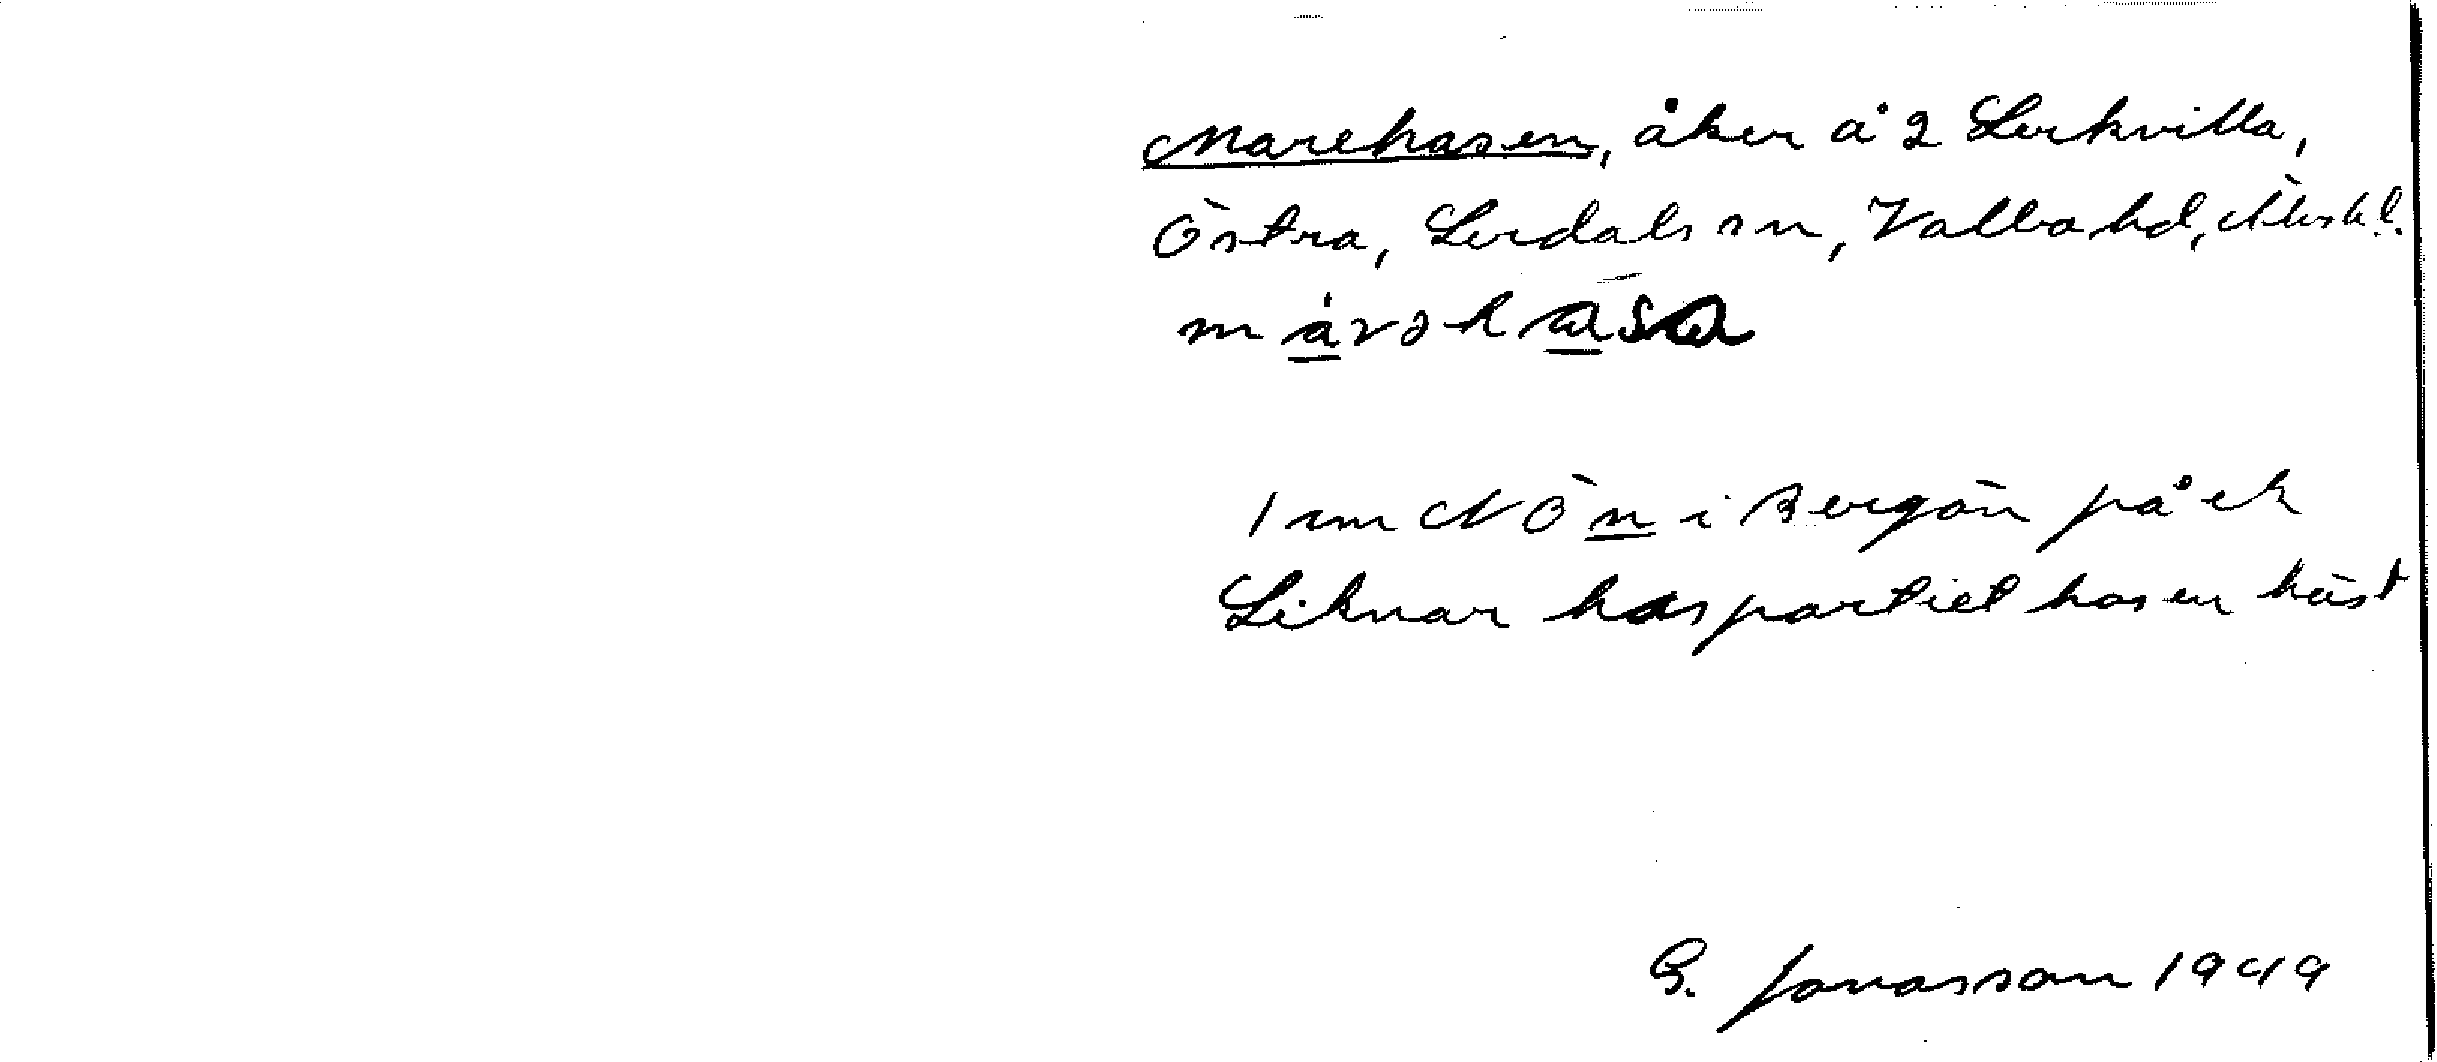 Marehasen, åker å 2 Lerkvilla,
Östra, Lerdals sn, Valbo hd, Älvsb. l.
mårəhasa
1 cm NÖ n i Bergön på ek
Liknar haspartiet hos en häst
G. Jonasson 1949